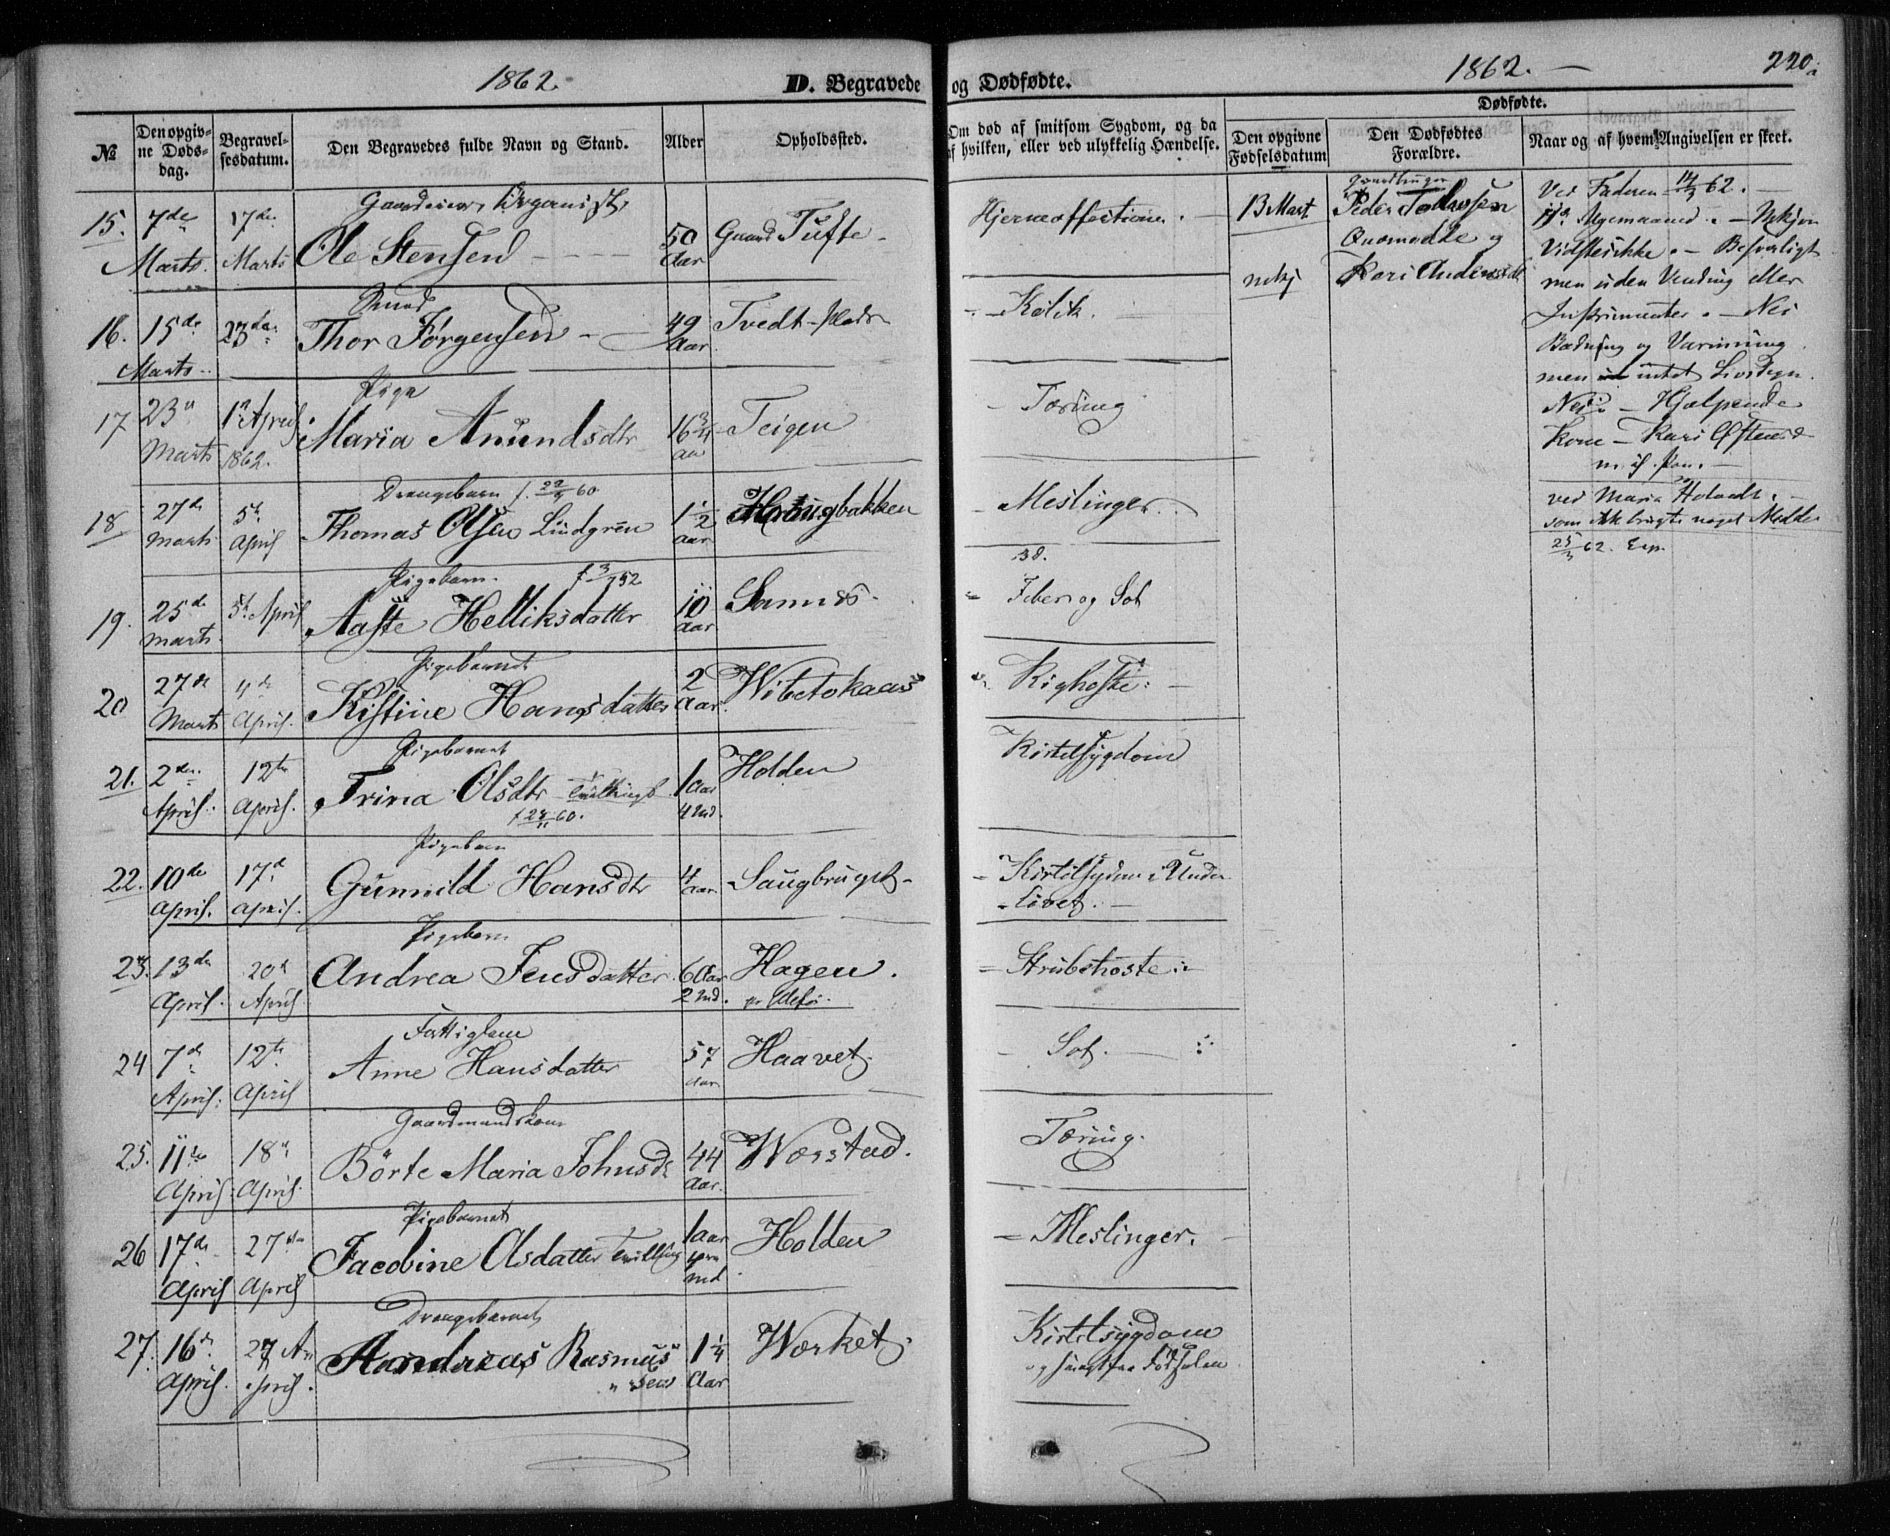 1862.
D. Begravede
og Dødfødte.
1862. —
220
№
Den opgivne Dødsdag.
Begravelsesdatum.
Den Begravedes fulde Navn og Stand.
Alder
Opholdssted.
Om død af smitsom Sygdom, og da af hvilken, eller ved ulykkelig Hændelse.
Dødfødte.
Den opgivne Fødselsdatum
Den Dødfødtes Forældre.
Naar og af hvem Angivelsen er skeet.
15. 7de Marts. 17de Marts
Gaardeier, Organist,
Ole Stensen - - - -
50 Aar
Gaard Tufte -
Hjerneaffection. -
16. 15de Marts 23de
Thor Jørgensen -
49 Aar
Tvedt-plads
- Kolik.
17 23de Marts 1ste April 1862.
Pige
Maria Anundsdtr
16 3/4 Aar
Teigen
- Tæring
18 27de Marts 5te April
Drengebarn f. 22/9 60
Thomas Olsen Lindgren
1 1/2 Aar
Haugbakken
- Meslinger.
19. 25de Marts 5te April
Pigebarn. f. 3/7 52
Aaste Helliksdatter
10 Aar
Sannes.
Feber og Sot
20 27de Marts 4de April.
Pigebarnet
Kistine Hansdatter
2 Aar.
Wibetokaas
Kighoste: -
21. 2den April. 12te April.
Pigebarnet
Trina Olsdtr Tvillingb
f 28/11 60.
1 Aar 4 Md.
Holden
Kirtelsygdom
22. 10de April. 17de April.
Pigebarn
Gunnild Hansdtr
4 Aar
Saugbruget -
- Kirtelsygdom i Under
- livet. -
23. 13de April. 20de April
Pigebarn
Andrea Jensdatter
6 Aar 2 Md.
Hagen.
pr Ulefos.
- Strubehoste:
24 7de April. 12te April
Fattiglem
Anne Hansdatter
57 Aar
Haavet.
- Sot. -
25. 11te April. 18de April.
Gaardmandskone
Börte Maria Johnsdr
44 Aar.
Wærstad.
Tæring.
26 17de April 27de April
Pigebarnet
Jacobine Olsdatter Tvilling
1 Aar Md
Holden
- Meslinger.
27. 16de April. 27 April.
Drengebarnet
Andreas Rasmussen
1 1/4 Aar
Værket.
Kirtelsygdom
13 Mart
Peder
og
Kari Andersdt
Ved Faderen 14/3 62. -
Vidste ikke. - Besværligt
men uden Vending eller
Instrumenter. - Nei
Badning og Varmning
men intet Livstegn.
Nei. - Hjælpende
Kone - Kari
ved Maria Holvedt. -
som ikk brugte noget Middel
25/3 62.